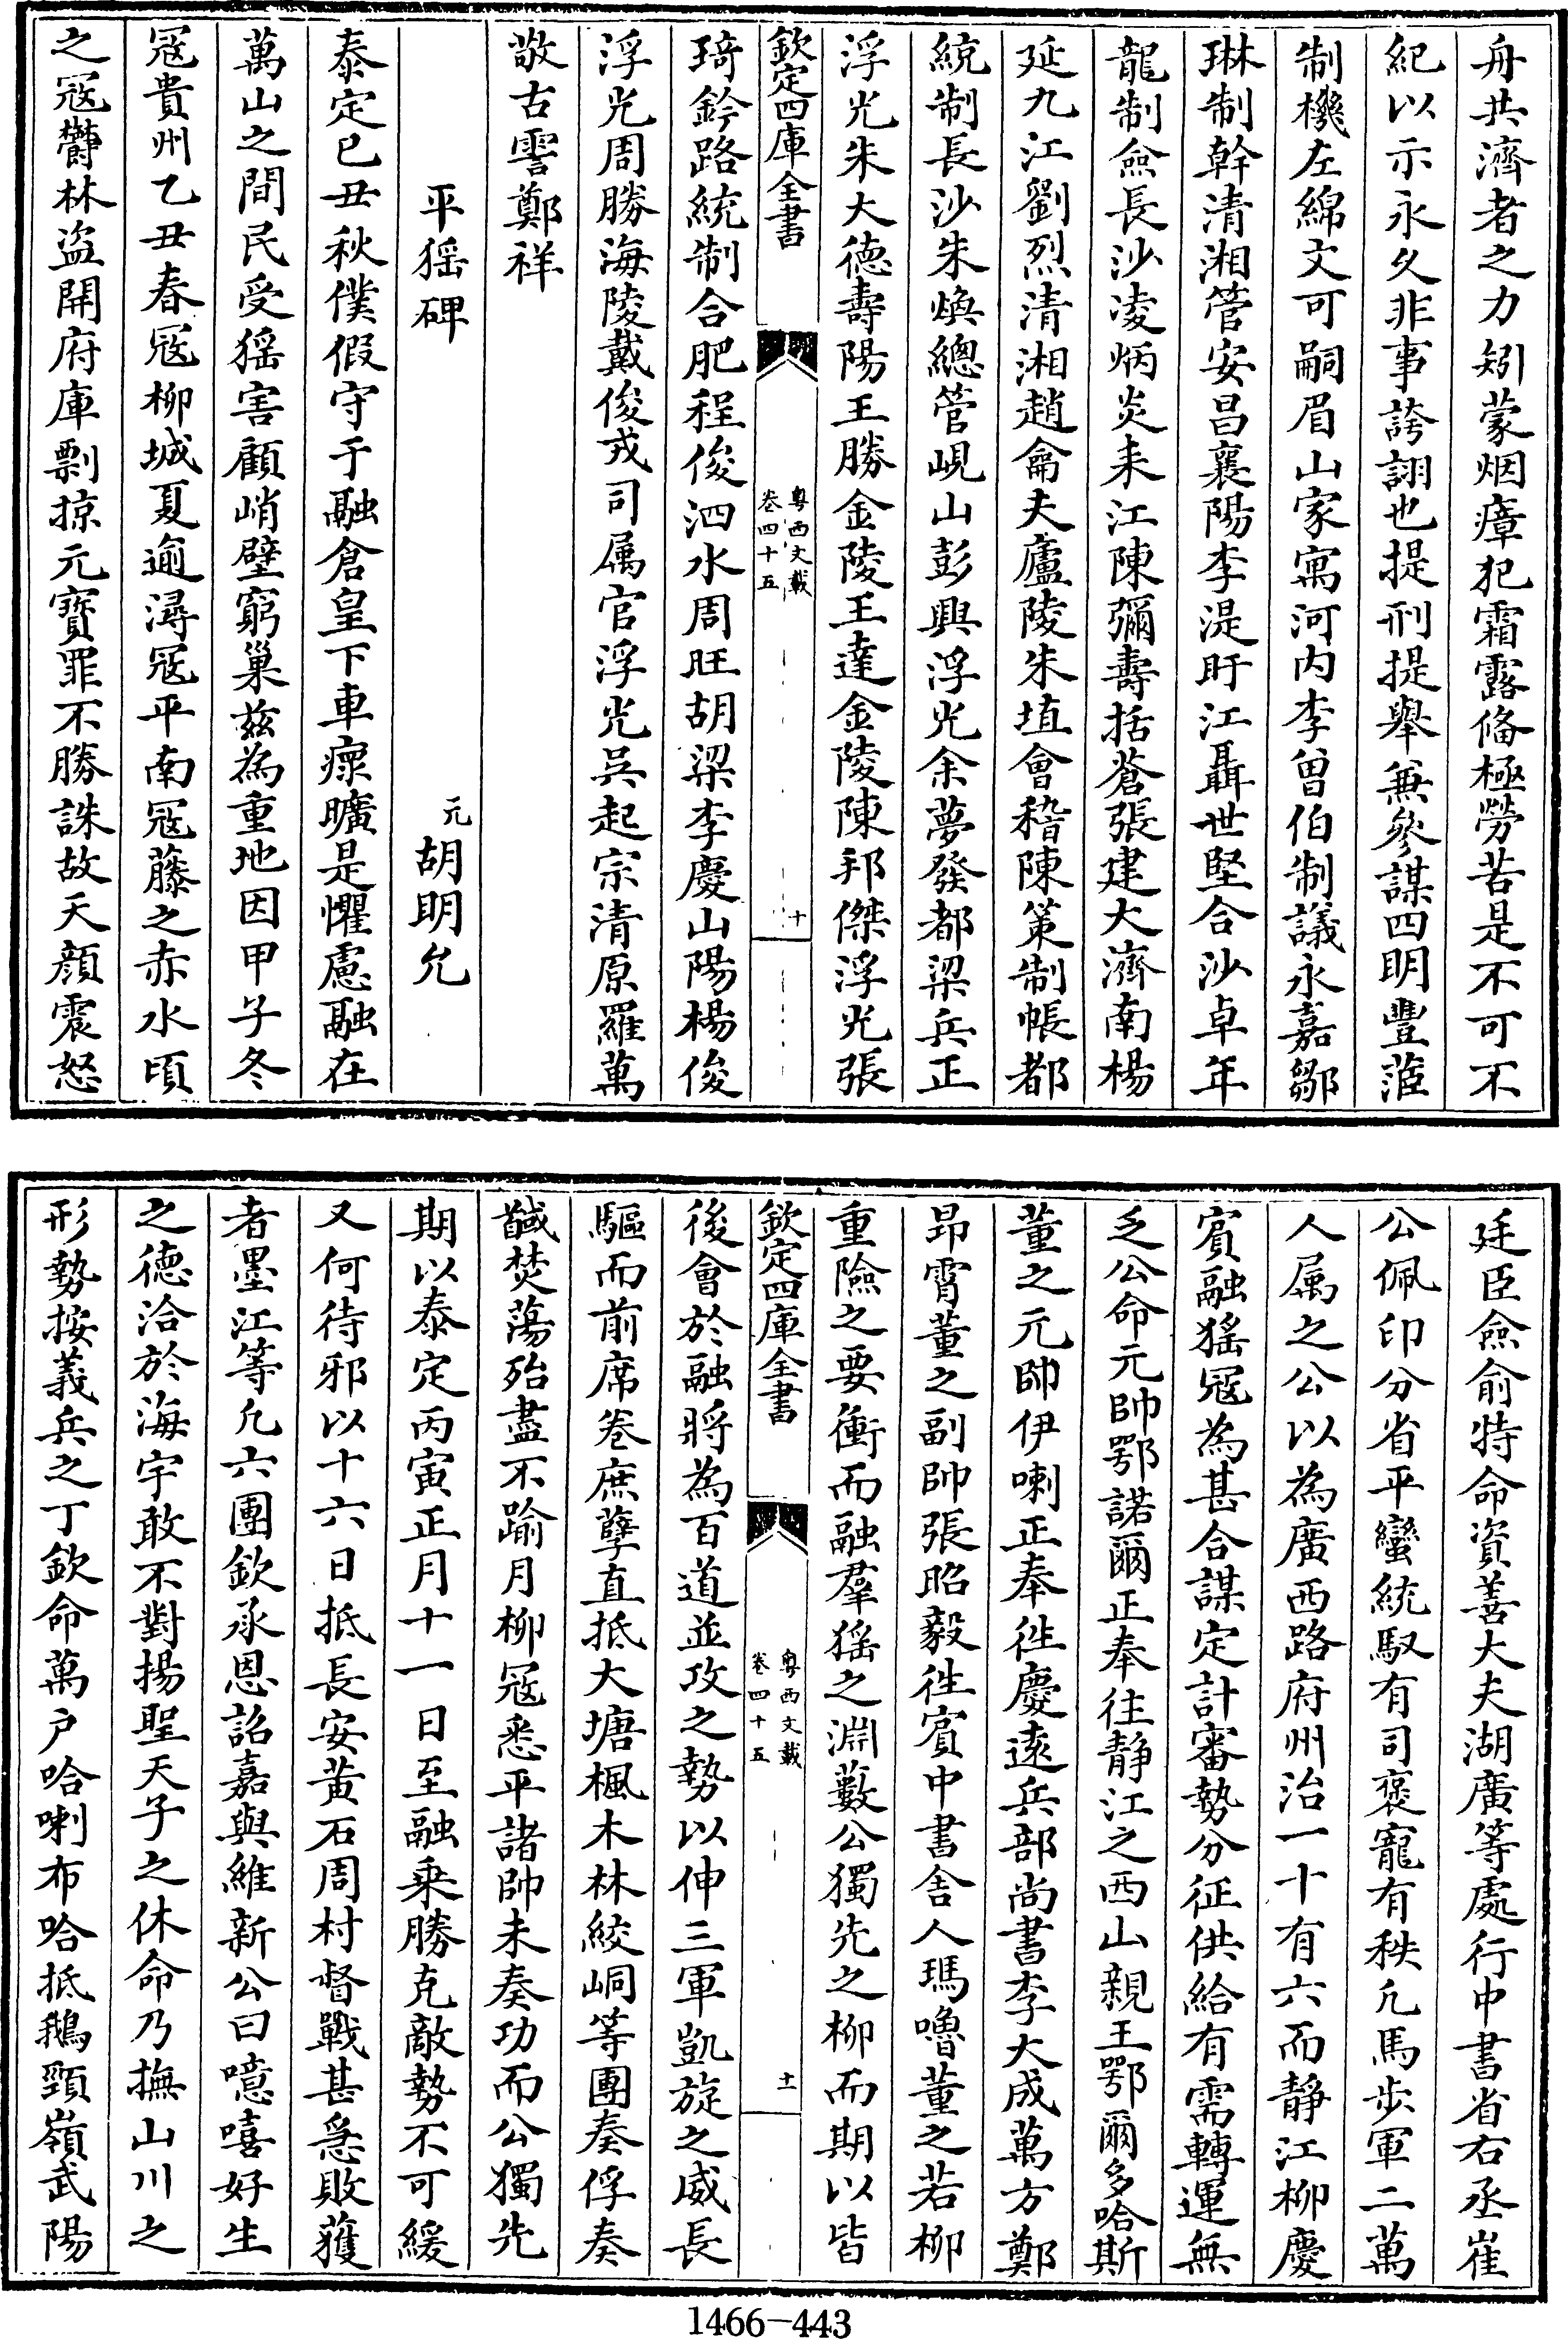 舟共濟者之力矧蒙烟瘴犯霜露俻極勞苦是不可不
紀以示永久非事誇詡也提刑提舉兼參謀四明豐茝
制機左綿文可嗣眉山家寓河内李曾伯制議永嘉鄒
琳制幹清湘管安昌襄陽李湜盱江聶世堅合沙卓年
龍制僉長沙凌炳炎耒江陳彌壽括蒼張建大濟南楊
延九江劉烈清湘趙龠夫廬陵朱埴會稽陳策制帳都
統制長沙朱煥總管峴山彭興浮光余夢發都梁兵正
浮光朱大德壽陽王勝金陵王達金陵陳邦傑浮光張
欽定四庫全書
粤西文載
卷四十五
十
琦鈐路統制合肥程俊泗水周旺胡梁李慶山陽楊俊
浮光周勝海陵戴俊戎司属官浮光吳起宗清原羅萬
敬古霅鄭祥
平猺碑
元胡明允
泰定已丑秋僕假守于融倉皇下車瘝曠是懼慮融在
萬山之間民受猺害顧峭壁窮巢兹為重地因甲子冬
冦貴州乙丑春冦柳城夏逾潯冦平南冦藤之赤水頃
之冦鬱林盜開府庫剽掠元寶罪不勝誅故天顔震怒
廷臣僉俞特命資善大夫湖廣等處行中書省右丞崔
公佩印分省平蠻統馭有司褒寵有秩凢馬步軍二萬
人属之公以為廣西路府州治一十有六而靜江柳慶
賓融猺冦為甚合謀定計審勢分征供給有需轉運無
乏公命元帥鄂諾爾正奉往静江之西山親王鄂爾多哈斯
董之元帥伊喇正奉徃慶逺兵部尚書李大成萬方鄭
昂霄董之副帥張昭毅徃賓中書舎人瑪嚕董之若柳
重險之要衝而融羣猺之淵藪公獨先之柳而期以皆
欽定四庫全書
粤西文載
卷四十五
十一
後會於融將為百道並攻之勢以伸三軍凱旋之威長
驅而前席卷庶孽直抵大塘楓木林絞峒等團奏俘奏
馘焚蕩殆盡不踰月柳冦悉平諸帥未奏功而公獨先
期以泰定丙寅正月十一日至融乗勝克敵勢不可緩
又何待邪以十六日抵長安黄石周村督戰甚急敗蕕
者墨江等凢六團欽承恩詔嘉與維新公曰噫嘻好生
之德洽於海宇敢不對揚聖天子之休命乃撫山川之
形勢按義兵之丁欽命萬户哈喇布哈抵鵝頸嶺武陽
1466—443